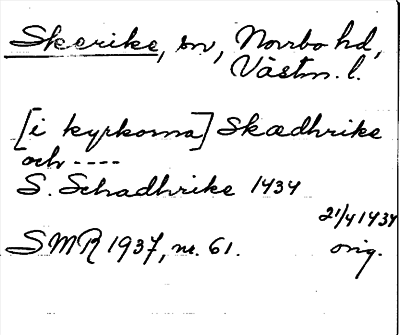 Skerike, sn, Norrbo hd,
Västm. l.
[i kyrkorna] Skædhrike
och ----
S. Schadhrike 1434
21/4 1434
SMR 1937, nr. 61. orig.